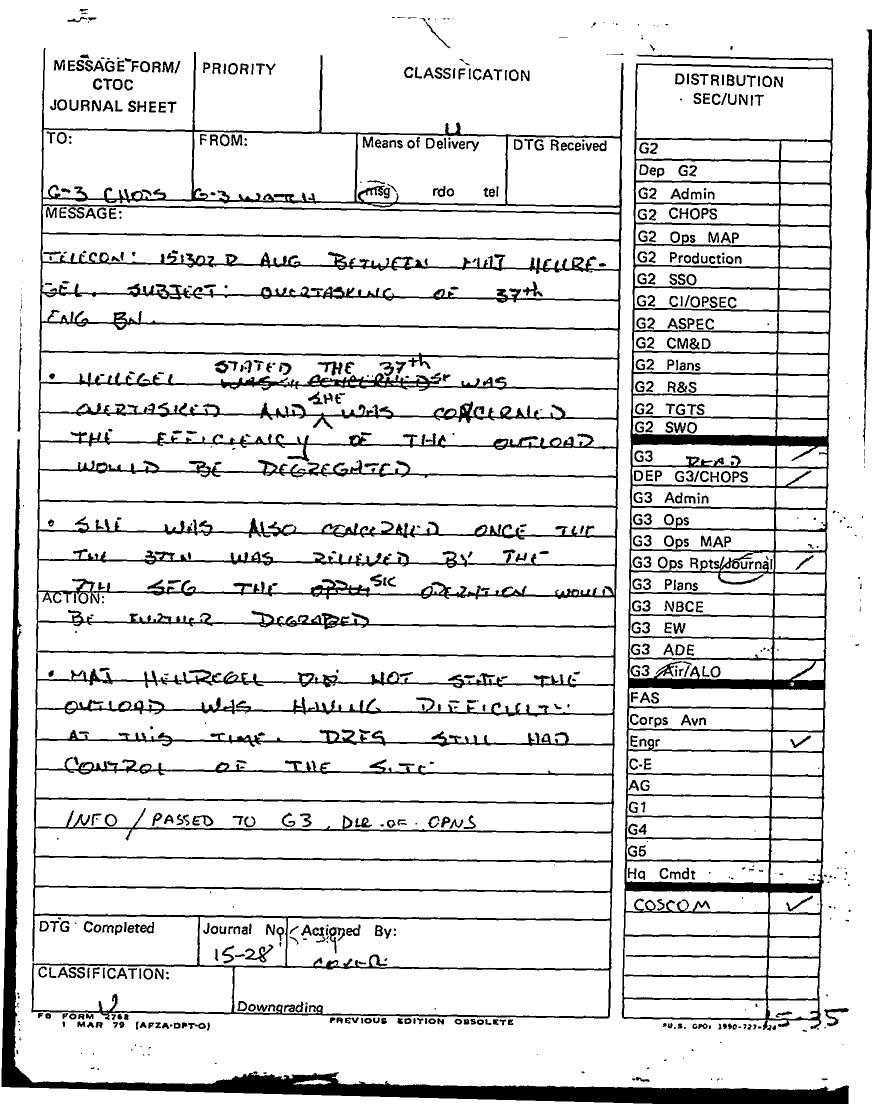 MESSAGE FORM/
CTOC
JOURNAL SHEET
PRIORITY
CLASSIFICATION
U
TO:
G-3 CHOPS
FROM:
G-3 WATCH
Means of Delivery
msg rdo tel
DTG Received
MESSAGE:
TELECON: 151302 D AUG BETWEEN MAJ HELLRE-
GEL. SUBJECT: OVERTASKING OF 37th
ENG BN.
• HELLEGEL STATED THE 37th WAS
OVERTASKED AND SHE WAS CONCERNED
THE EFFICIENCY OF THE OUTLOAD
WOULD BE DEGREGATED.
• SHE WAS ALSO CONCERNED ONCE THE
THE 37TH WAS RELIEVED BY THE
7TH SFG THE OPERATION WOULD
ACTION:
BE FURTHER DEGRADED
• MAJ HELLREGEL DID NOT STATE THE
OUTLOAD WAS HAVING DIFFICULTY
AT THIS TIME. DZFG STILL HAD
CONTROL OF THE SITE
INFO / PASSED TO G3, DIR OF OPNS
DTG Completed
Journal No
15-28
Actioned By:
CLASSIFICATION:
U
Downgrading
FB FORM 2768
1 MAR 79 (AFZA-DPT-O)
PREVIOUS EDITION OBSOLETE
DISTRIBUTION
SEC/UNIT
G2
Dep G2
G2 Admin
G2 CHOPS
G2 Ops MAP
G2 Production
G2 SSO
G2 CI/OPSEC
G2 ASPEC
G2 CM&D
G2 Plans
G2 R&S
G2 TGTS
G2 SWO
G3 READ
DEP G3/CHOPS
G3 Admin
G3 Ops
G3 Ops MAP
G3 Ops Rpts/Journal
G3 Plans
G3 NBCE
G3 EW
G3 ADE
G3 Air/ALO
FAS
Corps Avn
Engr ✓
C-E
AG
G1
G4
G5
Hq Cmdt
COSCOM ✓
15-35
*U.S. GPO: 1990-727-